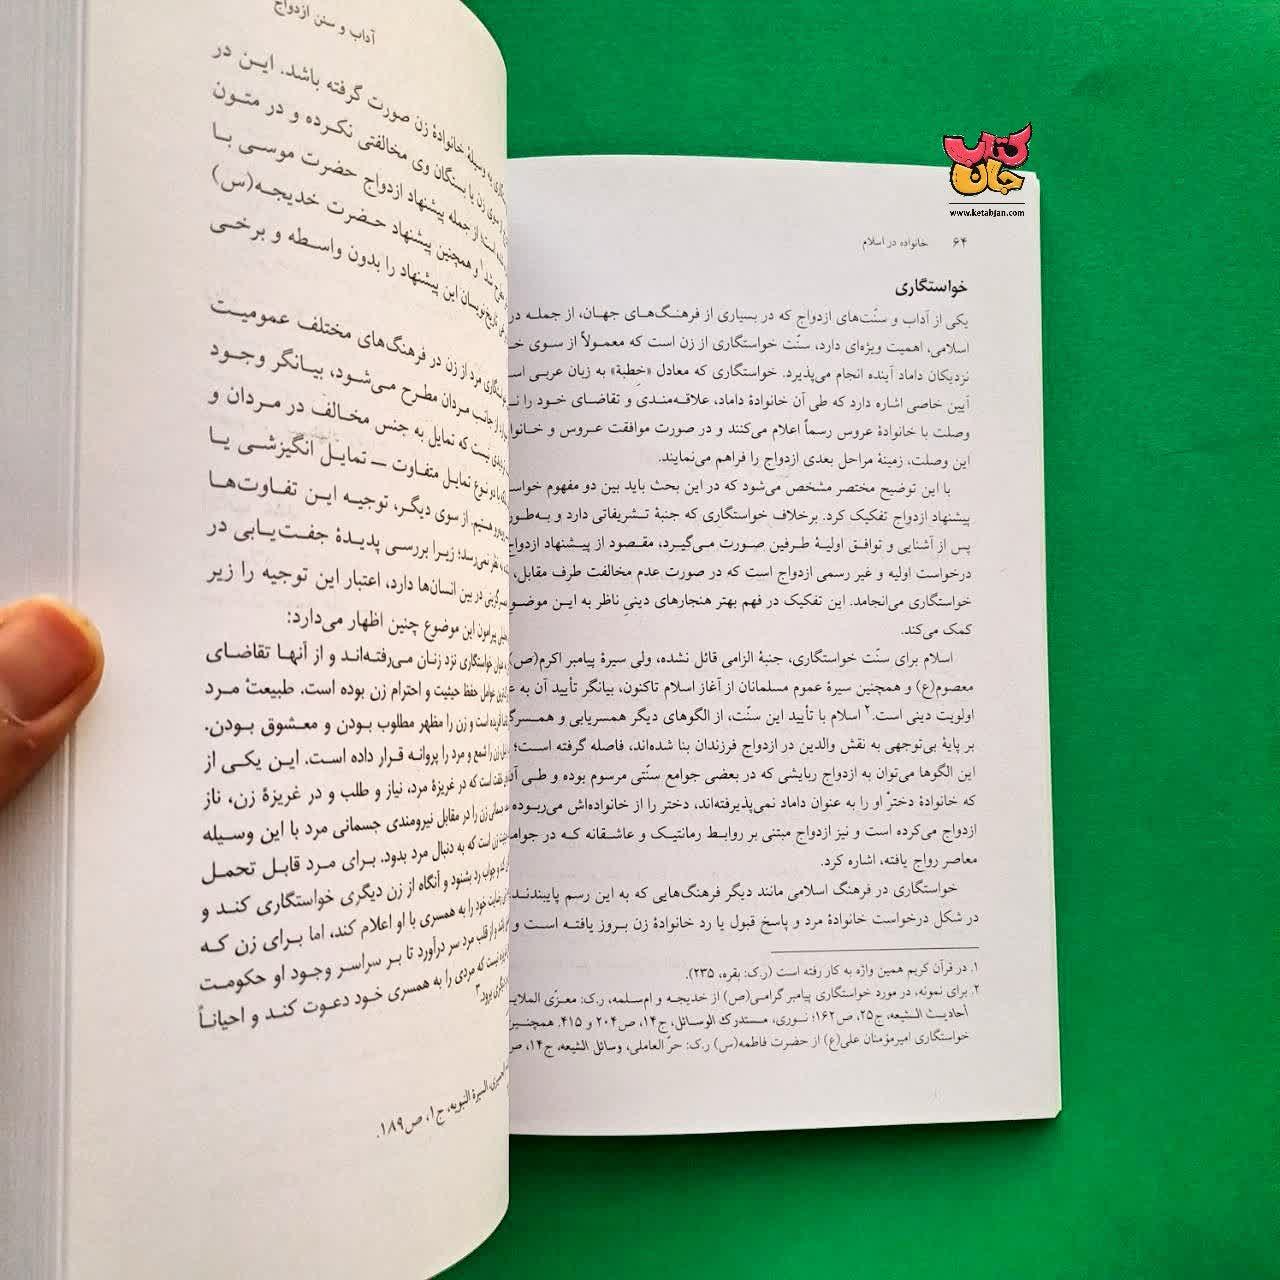 کتاب
جان
www.ketabjan.com
۶۴ خانواده در اسلام
خواستگاری
یکی از آداب و سنّت‌های ازدواج که در بسیاری از فرهنگ‌های جهان، از جمله در
اسلامی، اهمیت ویژه‌ای دارد، سنّت خواستگاری از زن است که معمولاً از سوی
نزدیکان داماد آینده انجام می‌پذیرد. خواستگاری که معادل «خِطبة» به زبان عربی
آیین خاصی اشاره دارد که طی آن خانوادهٔ داماد، علاقه‌مندی و تقاضای خود را
وصلت با خانوادهٔ عروس رسماً اعلام می‌کنند و در صورت موافقت عروس و
این وصلت، زمینهٔ مراحل بعدی ازدواج را فراهم می‌نمایند.
با این توضیح مختصر مشخص می‌شود که در این بحث باید بین دو مفهوم
پیشنهاد ازدواج تفکیک کرد. برخلاف خواستگاری که جنبهٔ تشریفاتی دارد و
پس از آشنایی و توافق اولیهٔ طرفین صورت می‌گیرد، مقصود از پیشنهاد ازدواج
درخواست اولیه و غیر رسمی ازدواج است که در صورت عدم مخالفت طرف مقابل،
خواستگاری می‌انجامد. این تفکیک در فهم بهتر هنجارهای دینیِ ناظر به این
کمک می‌کند.
اسلام برای سنّت خواستگاری، جنبهٔ الزامی قائل نشده، ولی سیرهٔ پیامبر اکرم(ص)
معصوم(ع) و همچنین سیرهٔ عموم مسلمانان از آغاز اسلام تاکنون، بیانگر تأیید آن به
اولویت دینی است.۲ اسلام با تأیید این سنّت، از الگوهای دیگر همسریابی و
بر پایهٔ بی‌توجهی به نقش والدین در ازدواج فرزندان بنا شده‌اند، فاصله گرفته است؛
این الگوها می‌توان به ازدواج ربایشی که در بعضی جوامع سنّتی مرسوم بوده و طی
که خانوادهٔ دخترْ او را به عنوان داماد نمی‌پذیرفته‌اند، دختر را از خانواده‌اش می‌ربوده
ازدواج می‌کرده است و نیز ازدواج مبتنی بر روابط رمانتیک و عاشقانه که در
معاصر رواج یافته، اشاره کرد.
خواستگاری در فرهنگ اسلامی مانند دیگر فرهنگ‌هایی که به این رسم پایبندند
در شکل درخواست خانوادهٔ مرد و پاسخ قبول یا رد خانوادهٔ زن بروز یافته است و
۱. در قرآن کریم همین واژه به کار رفته است (ر.ک: بقره، ۲۳۵).
۲. برای نمونه، در مورد خواستگاری پیامبر گرامی(ص) از خدیجه و ام‌سلمه، ر.ک: معزّی
أحادیث الشیعه، ج۲۵، ص۱۶۲؛ نوری، مستدرک الوسائل، ج۱۴، ص۲۰۴ و ۴۱۵. همچنین
خواستگاری امیرمؤمنان علی(ع) از حضرت فاطمه(س) ر.ک: حرّ العاملی، وسائل الشیعه، ج۱۴،
آداب و سنن ازدواج
به وسیلهٔ خانوادهٔ زن صورت گرفته باشد. این در
سوی زن یا بستگان وی مخالفتی نکرده و در متون
است؛ از جمله پیشنهاد ازدواج حضرت موسی با
شد۱ و همچنین پیشنهاد حضرت خدیجه(س)
تاریخ‌نویسان این پیشنهاد را بدون واسطه و برخی
مرد از زن در فرهنگ‌های مختلف عمومیت
از جانب مردان مطرح می‌شود، بیانگر وجود
نیست که تمایل به جنس مخالف در مردان و
با دو نوع تمایل متفاوت – تمایل انگیزشی یا
هستیم. از سوی دیگر، توجیه این تفاوت‌ها
به نظر نمی‌رسد؛ زیرا بررسی پدیدهٔ جفت‌یابی در
در بین انسان‌ها دارد، اعتبار این توجیه را زیر
پیرامون این موضوع چنین اظهار می‌دارد:
خواستگاری نزد زنان می‌رفته‌اند و از آنها تقاضای
عوامل حفظ حیثیت و احترام زن بوده است. طبیعتْ مرد
آفریده است و زن را مظهر مطلوب بودن و معشوق بودن.
زن را شمع و مرد را پروانه قرار داده است. این یکی از
است که در غریزهٔ مرد، نیاز و طلب و در غریزهٔ زن، ناز
جسمانی زن را در مقابل نیرومندی جسمانی مرد با این وسیله
زن است که به دنبال مرد بدود. برای مرد قابل تحمل
و جواب رد بشنود و آنگاه از زن دیگری خواستگاری کند و
رضایت خود را به همسری با او اعلام کند، اما برای زن که
و از قلب مرد سر درآورد تا بر سراسر وجود او حکومت
نیست که مردی را به همسری خود دعوت کند و احیاناً
دیگری برود.۳
السیرة النبویه، ج۱، ص۱۸۹.